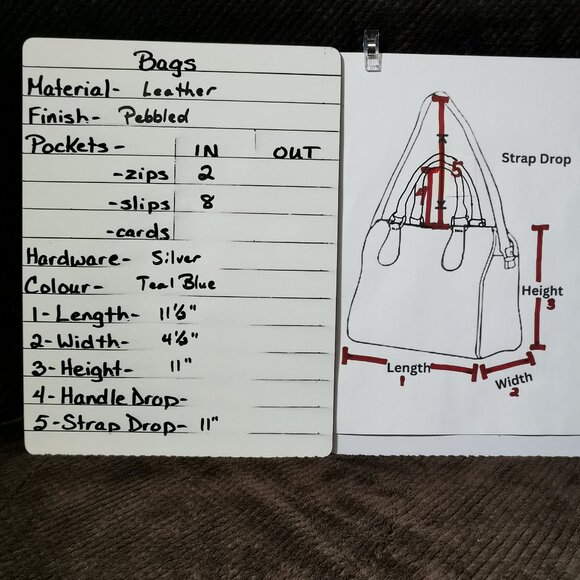 Bags
Material- Leather
Finish- Pebbled
Pockets- IN OUT
-zips 2
-slips 8
-cards
Hardware- Silver
Colour- Teal Blue
1-Length- 11½"
2-Width- 4½"
3-Height- 11"
4-Handle Drop-
5-Strap Drop- 11"
Strap Drop
5
4
Height
3
Length
1
Width
2